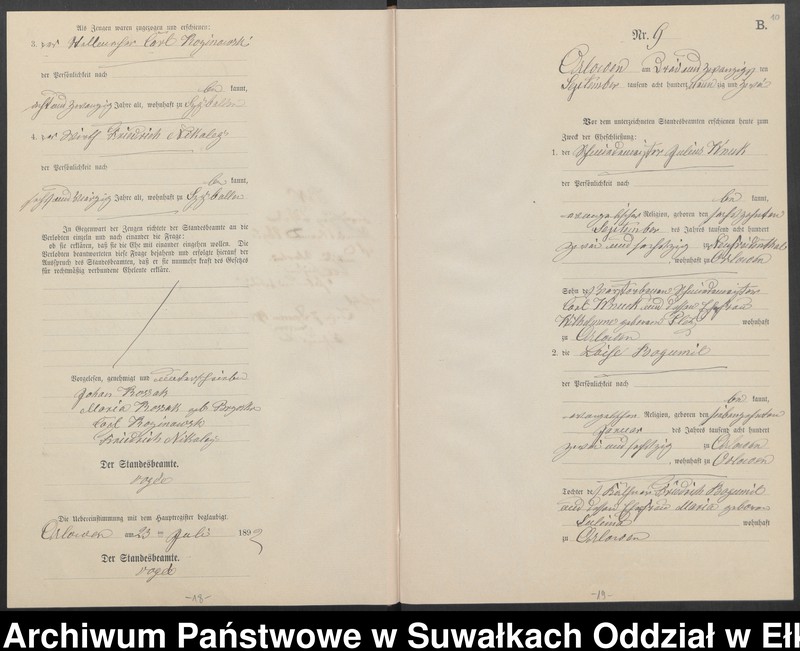 Als Zeugen waren zugezogen und erschienen:
3. der Stellmacher Carl Roginawski
der Persönlichkeit nach
be kannt,
acht und zwanzig Jahre alt, wohnhaft zu
4. der Wirth Friedrich Nikalay
der Persönlichkeit nach
be kannt,
Jahre alt, wohnhaft zu
In Gegenwart der Zeugen richtete der Standesbeamte an die
Verlobten einzeln und nach einander die Frage:
ob sie erklären, daß sie die Ehe mit einander eingehen wollen. Die
Verlobten beantworteten diese Frage bejahend und erfolgte hierauf der
Ausspruch des Standesbeamten, daß er sie nunmehr kraft des Gesetzes
für rechtmäßig verbundene Eheleute erkläre.
Vorgelesen, genehmigt und unterschrieben
Johan Rossak
Maria Rossak geb.
Carl Roginawsk
Friedrich Nikalay
Der Standesbeamte.
Die Uebereinstimmung mit dem Hauptregister beglaubigt.
Orlowen am 23 ten Juli 189
Der Standesbeamte.
-18-
B.
Nr. 9
Orlowen am Drei und zwanzigsten
September tausend acht hundert neun zig und zwei
Vor dem unterzeichneten Standesbeamten erschienen heute zum
Zweck der Eheschließung:
1. der Schmiedemeister Julius Knuk
der Persönlichkeit nach
be kannt,
evangelischer Religion, geboren den sechszehnten
September des Jahres tausend acht hundert
zwei und sechszig zu
, wohnhaft zu Orlowen
Sohn des verstorbenen Schmiedemeister
Carl Knuck und dessen Ehefrau
Wilhelmine geborene wohnhaft
zu Orlowen
2. die Luise Bogumil
der Persönlichkeit nach
be kannt,
evangelischer Religion, geboren den siebenzehnten
Januar des Jahres tausend acht hundert
zwei und sechszig zu Orlowen
, wohnhaft zu Orlowen
Tochter des Käthner Friedrich Bogumil
und dessen Ehefrau Maria geborene
Sulima wohnhaft
zu Orlowen
-19-
Archiwum Państwowe w Suwałkach Oddział w Ełk